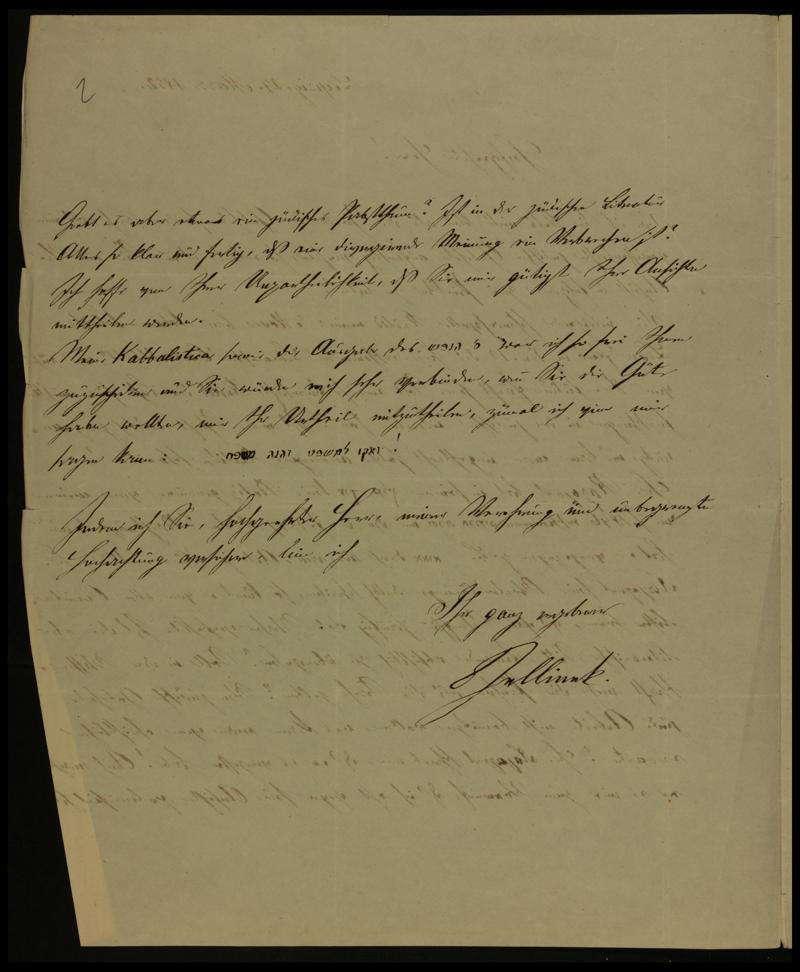 2
Giebt es aber etwas ein jüdisches Pabstthum? Ist in der jüdischen Literatur
Alles so klar und fertig, daß eine divergirende Meinung ein Verbrechen ist?
Ich hoffe von Ihrer Unpartheilichkeit, daß Sie mir gütigst Ihre Ansichten
mittheilen werden.
Meine Kabbalistica sowie die Ausgabe des ס' הנפש war ich so frei Ihnen
zuzuschicken und Sie würden mich sehr verbinden, wenn Sie die Güte
haben wollten, mir Ihr Urtheil mitzutheilen, zumal ich von mir
sagen kann: ויקו למשפט והנה משפח!
Indem ich Sie, hochgeehrter Herr, meiner Verehrung und unbegrenzte
Hochachtung versichere bin ich
Ihr ganz ergebener
Jellinek.